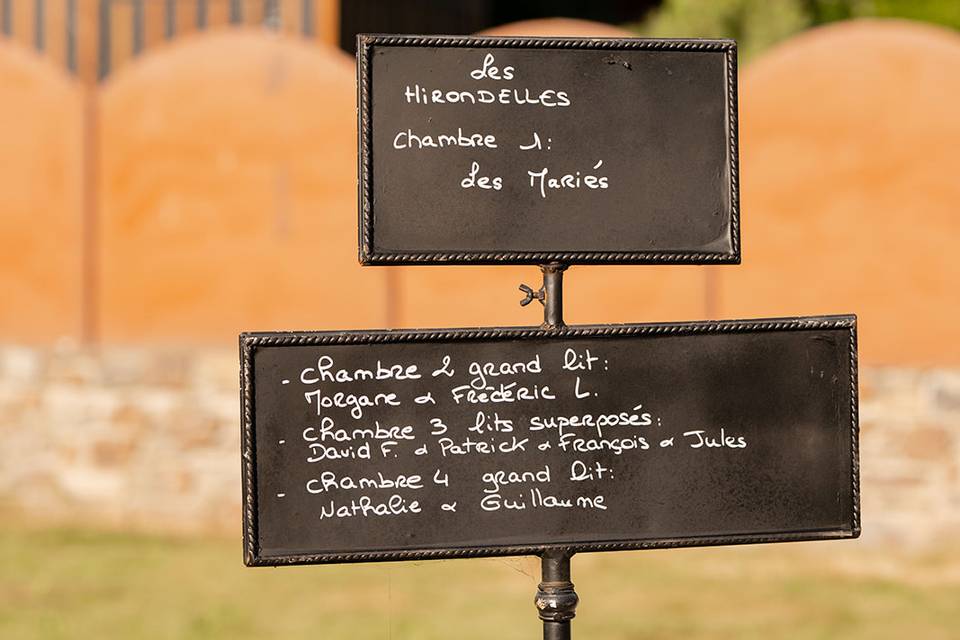 Les
HIRONDELLES
Chambre 1:
Les Mariés
- Chambre 2 grand lit:
Morgane & Frédéric L.
- Chambre 3 lits superposés:
David F. & Patrick & François & Jules
- Chambre 4 grand lit:
Nathalie & Guillaume